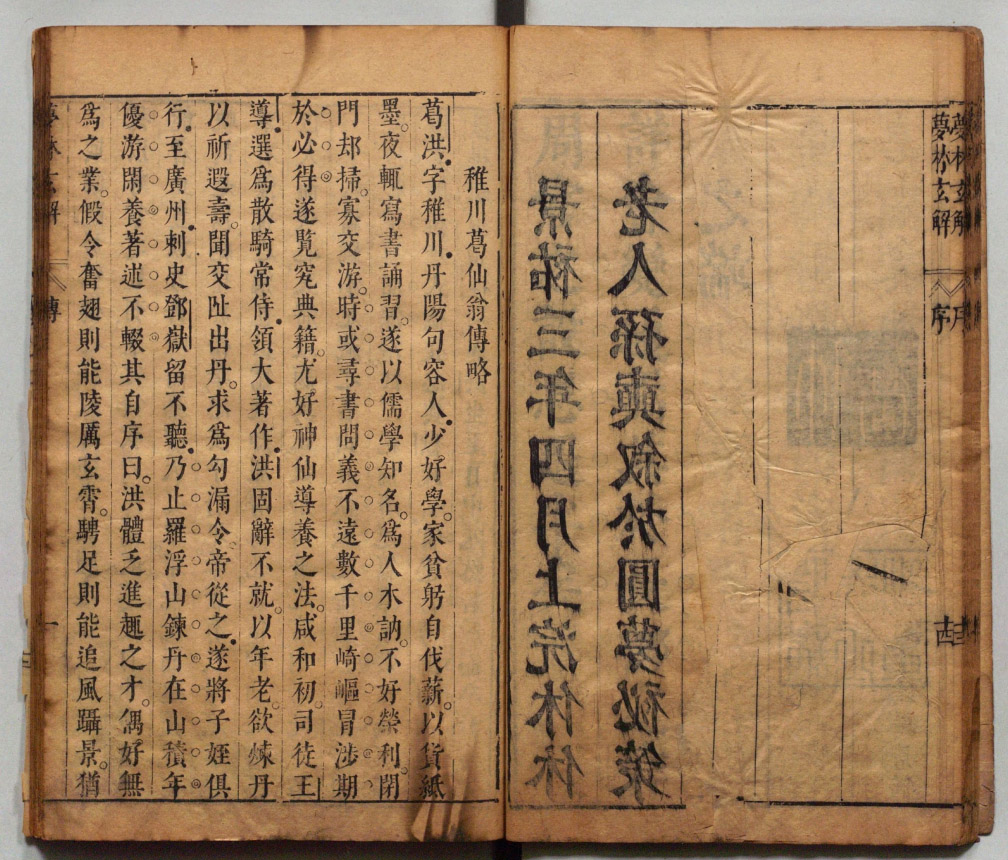 夢林玄解 序
景祐三年四月上浣休休
老人孫奭叙於圓夢秘策
稚川葛仙翁傳略
葛洪字稚川丹陽句容人少好學家貧躬自伐薪以貨紙
墨夜輒寫書誦習遂以儒學知名爲人木訥不好榮利閉
門却掃寡交游時或尋書問義不遠數千里崎嶇冒涉期
於必得遂覽究典籍尤好神仙導養之法咸和初司徒王
導選爲散騎常侍領大著作洪固辭不就以年老欲煉丹
以祈遐壽聞交趾出丹求爲勾漏令帝從之遂將子姪俱
行至廣州刺史鄧嶽留不聽乃止羅浮山鍊丹在山積年
優游閑養著述不輟其自序曰洪體乏進趣之才偶好無
爲之業假令奮翅則能陵厲玄霄騁足則能追風躡景猶
夢林玄解 傳 一